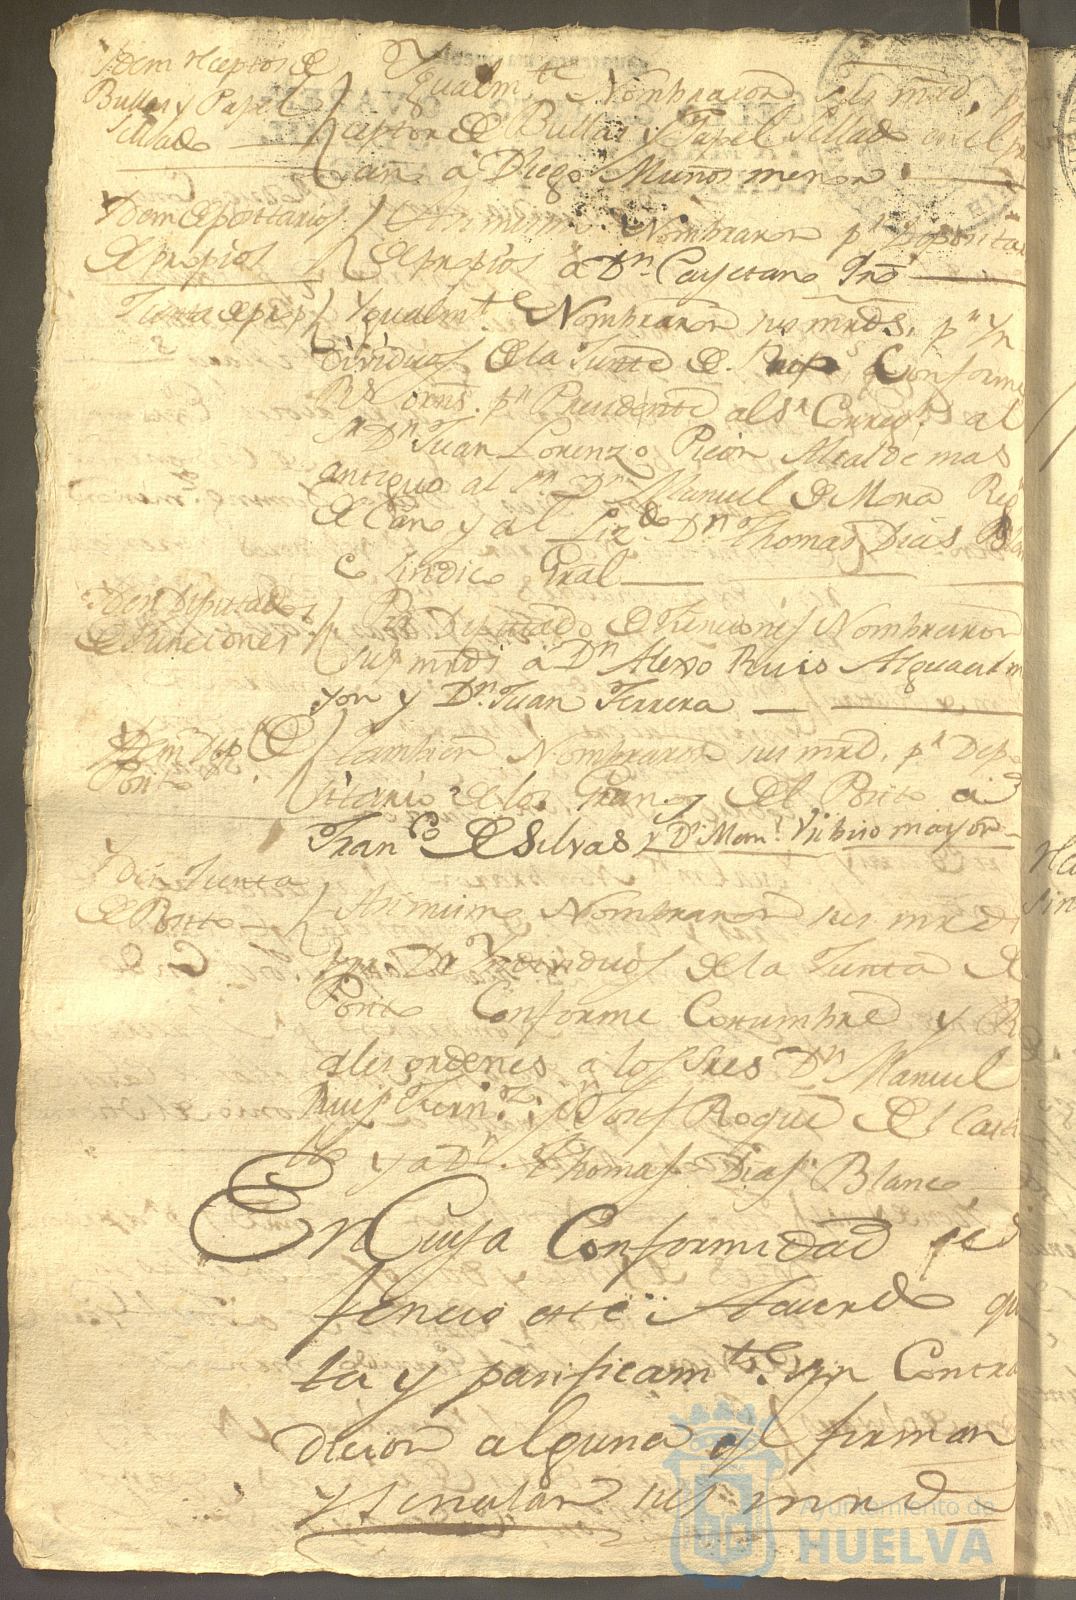 Idem rceptor de
Bullas y Papel
Sellado
Ygualmte Nombraron sus mrd, pr
ceptor de Bullas y Papel Sellado en el pre
año á Diego Muños menor
Idem Depositario
de propios
Asimismo Nombraron pr Deposita
de propios á Dn Cayetano
Junta de prop
Ygualmte Nombraron sus mrds. pr Yn
dividuos de la Junta de Conforme
Rs orns. pr Precidente al sr Corregr al
sr Dn Juan Lorenzo Picon Alcalde mas
antiguo al sr Dn Manuel de Mora Regr
Decano y al Lizdo Dn Thomas Dias Blan
co Sindico Gral
Idem Diputados
de Funciones
Pr Diputado de Funciones Nombraron
sus mrds á Dn Alexo Ruis Alguacil m
yor y Dn Juan Ferrera
Idem Dep. de
Posito
tambien Nombraron sus mrd. pr Depo
sitario de los Granos del Posito a
Franco de Silvas y Dn Manl mayor
Idem Junta
de Posito
Asimismo Nombraron sus mrd
Yndividuos de la Junta de
Posito Conforme Costumbre y R
ales ordenes a los Sres Dn Manuel
Ruis Fernz Josef Roque del
y a Dn Thomas Dias Blanco
En Cuya Conformidad se
fenecio este Acuerdo qui
ta y pacificamte sin Contra
dicion alguna y firman
y señalan sus mrd
Ayuntamiento de
HUELVA